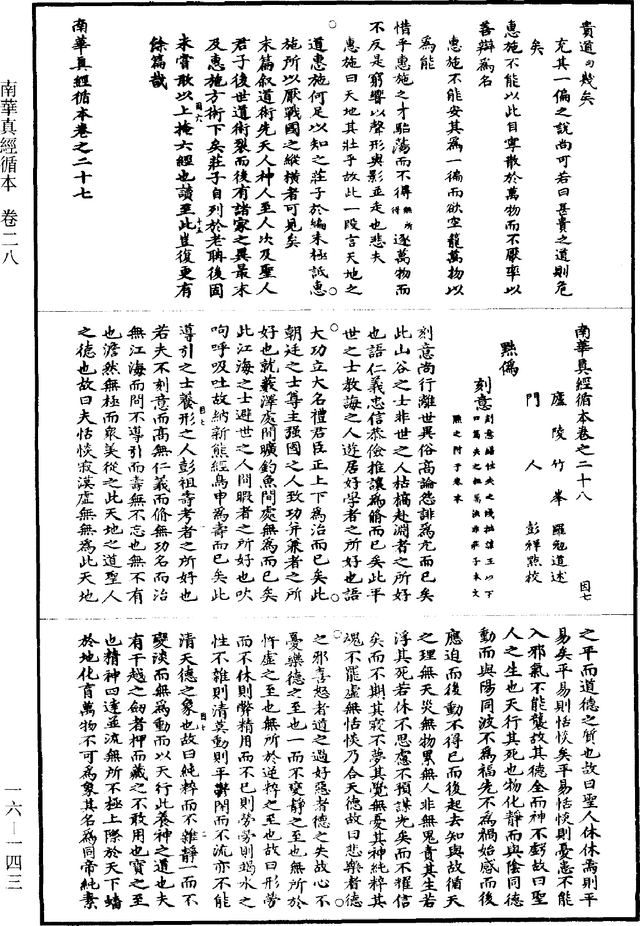 南華真經循本　卷二八
一六—一四三
貴道曰幾矣
充其一偏之說尚可若曰甚貴之道則危
矣
惠施不能以此自寧散於萬物而不厭率以
善辯為名
惠施不能安其為一偏而欲空籠萬物以
為能
惜乎惠施之才駘蕩而不得逐萬物而
不反是窮響以聲形與影並走也悲夫
惠施曰天地其壯乎故此一段言天地之
道惠施何足以知之莊子於編末極詆惠
施所以厭戰國之縱橫者可見矣
末篇叙道術先天人神人至人次及聖人
君子後世道術裂而後有諸家之異最末
及惠施方術下矣莊子自列於老聃後固
未嘗敢以上掩六經也讀至此豈復更有
餘篇哉
南華真經循本卷之二十七
南華真經循本卷之二十八
因七
廬陵竹峯　羅勉道述
門人　彭祥點校
黜偽
刻意
刻意尚行離世異俗高論怨誹為亢而已矣
此山谷之士非世之人枯槁赴淵者之所好
也語仁義忠信恭儉推讓為脩而已矣此平
世之士教誨之人遊居好學者之所好也語
大功立大名禮君臣正上下為治而已矣此
朝廷之士尊主强國之人致功并兼者之所
好也就藪澤處閒曠釣魚閒處無為而已矣
此江海之士避世之人閒暇者之所好也吹
呴呼吸吐故納新熊經鳥申為壽而已矣此
導引之士養形之人彭祖壽考者之所好也
若夫不刻意而高無仁義而脩無功名而治
無江海而閒不導引而壽無不忘也無不有
也澹然無極而衆美從之此天地之道聖人
之德也故曰夫恬惔寂漠虛無無為此天地
之平而道德之質也故曰聖人休休焉則平
易矣平易則恬惔矣平易恬惔則憂患不能
入邪氣不能襲故其德全而神不虧故曰聖
人之生也天行其死也物化靜而與陰同德
動而與陽同波不為福先不為禍始感而後
應迫而後動不得已而後起去知與故循天
之理無天災無物累無人非無鬼責其生若
浮其死若休不思慮不預謀光矣而不耀信
矣而不期其寢不夢其覺無憂其神純粹其
魂不罷虛無恬惔乃合天德故曰悲樂者德
之邪喜怒者道之過好惡者德之失故心不
憂樂德之至也一而不變靜之至也無所於
忤虛之至也無所於逆粹之至也故曰形勞
而不休則弊精用而不已則勞勞則竭水之
性不雜則清莫動則平鬱閉而不流亦不能
清天德之象也故曰純粹而不雜靜一而不
變淡而無為動而以天行此養神之道也夫
有干越之劒者柙而藏之不敢用也寶之至
也精神四達並流無所不極上際於天下蟠
於地化育萬物不可為象其名為同帝純素